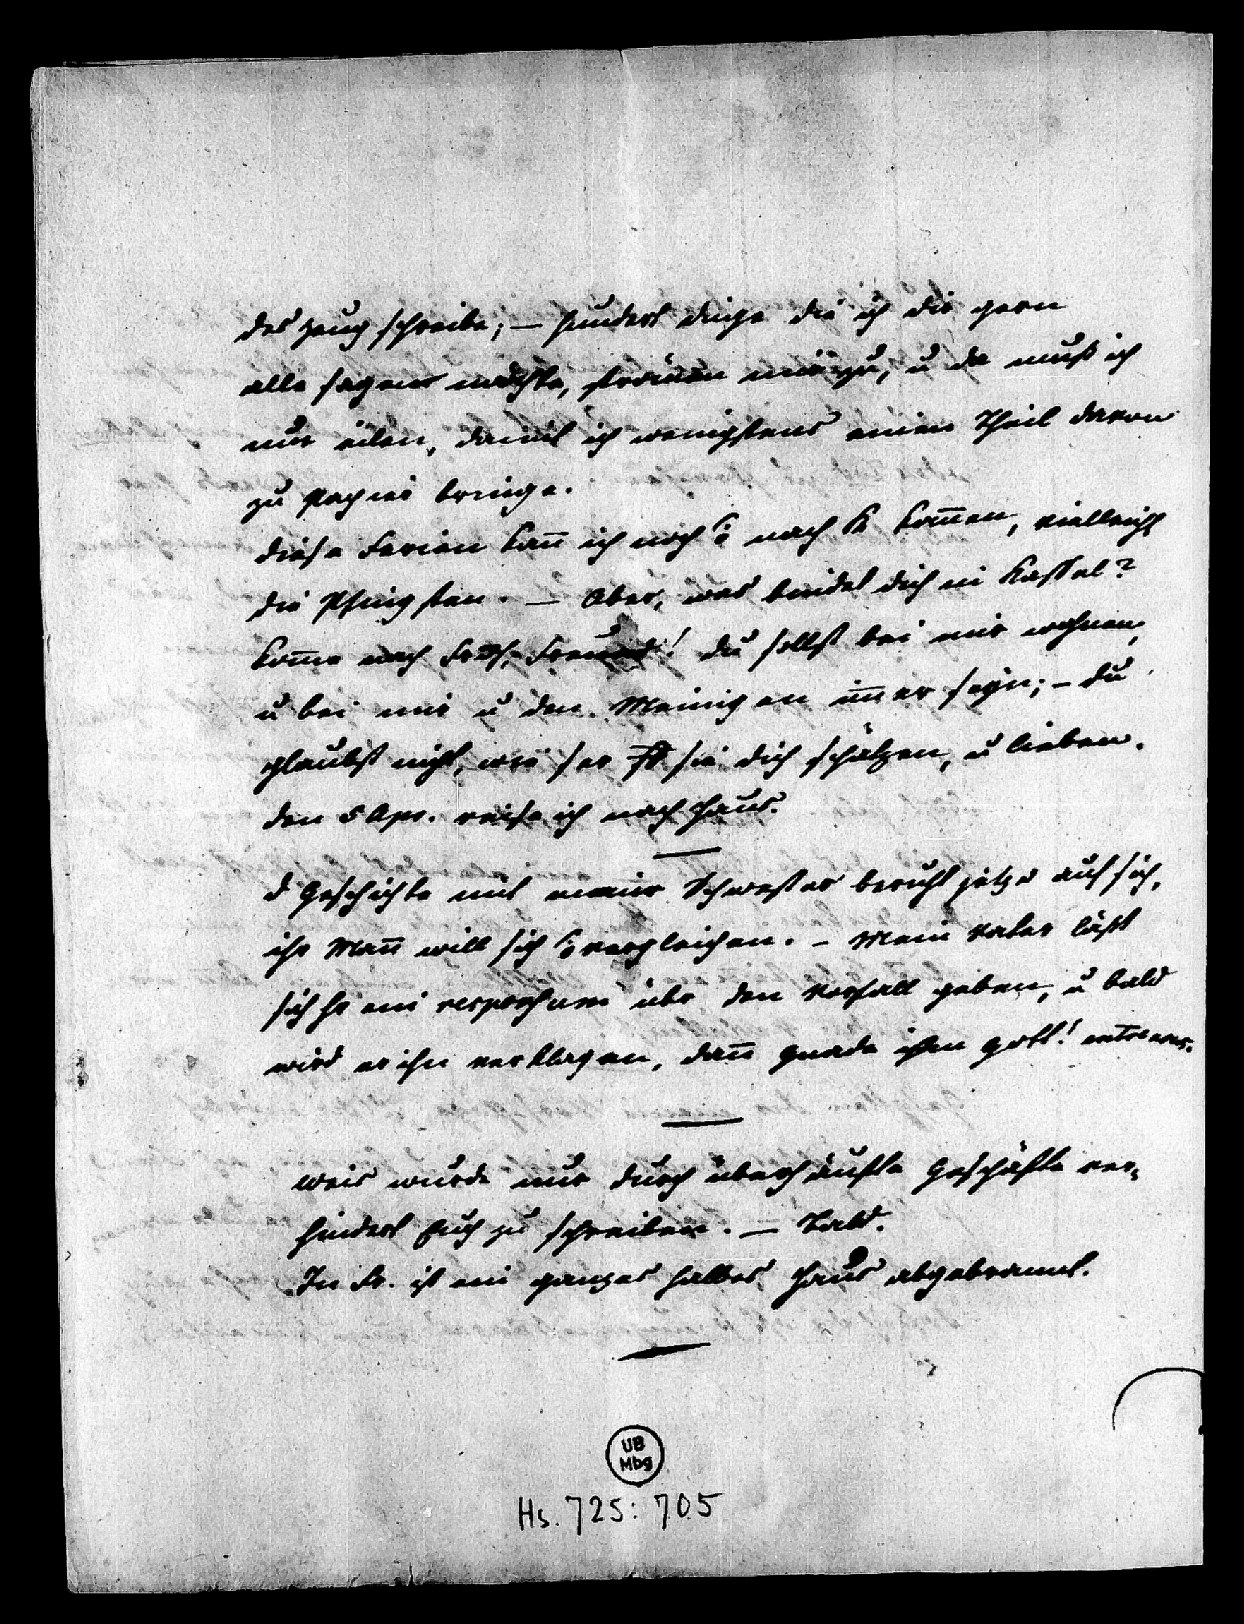 das zeug schreibe; – hundert dinge die ich dir gern
alle sagen möchte, strömen mir zu, u da muß ich
nur eilen, damit ich wenigstens einen Theil davon
zu Papier bringe.
diese Ferien kan̄ ich noch nach kom̄en, vielleicht
die Pfingsten. – Aber, was bindet dich in Kassel?
kom̄e nach Freund! du sollst bei mir wohnen,
u bei mir u den Meinigen im̄er seyn; – du
glaubst nicht, wie ser sie dich schätzen, u lieben.
den 5 Apr. reise ich nach Haus.
d Geschichte mit meiner Schwester beruht jetzo auf sich,
ihr Man̄ will sich vergleichen. – Mein Vater läßt
sich ein responsum übr den Vorfall geben, u bald
wird er ihn verklagen, dan̄ gnade ihm gott! entre nous.
Weis wurde nur durch überhäufte Geschäfte ver-
hindert Euch zu schreiben. – Bald.
In Fr. ist ein ganzes halbes Haus abgebrannt.
UB
Mbg
Hs. 725: 705